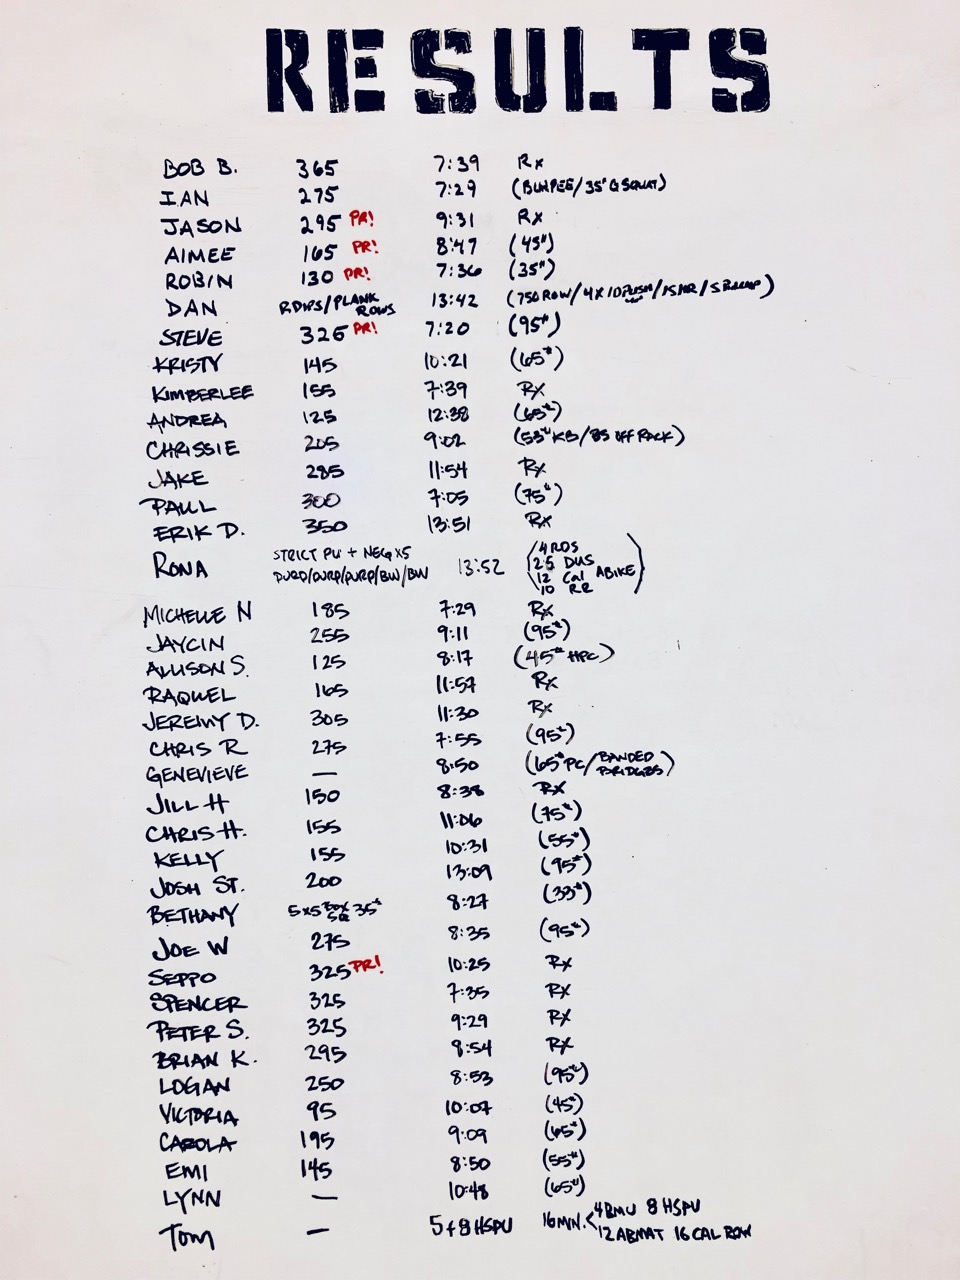 RESULTS
BOB B. 365 7:39 Rx
IAN 275 7:29 (BURPEE/35# G SQUAT)
JASON 295 PR! 9:31 Rx
AIMEE 165 PR! 8:47 (45#)
ROBIN 130 PR! 7:36 (35#)
DAN RDIPS/PLANK ROWS 13:42 (750 ROW/4X10 PUSH/15 /5
STEVE 325 PR! 7:20 (95#)
KRISTY 145 10:21 (65#)
KIMBERLEE 155 7:39 RX
ANDREA 125 12:38 (65#)
CHRISSIE 205 9:02 (53# KB/85 OFF RACK)
JAKE 285 11:54 Rx
PAUL 300 7:05 (75#)
ERIK D. 350 13:51 Rx
RONA STRICT PU + NEG X5 13:52 4 RDS
PURP/PURP/PURP/BW/BW 25 DUS
12 Cal ABIKE
10 RR
MICHELLE N 185 7:29 Rx
JAYCIN 255 9:11 (95#)
ALLISON S. 125 8:17 (45# HPC)
RAQUEL 165 11:57 Rx
JEREMY D. 305 11:30 Rx
CHRIS R 275 7:55 (95#)
GENEVIEVE — 8:50 (65# PC/BANDED BRIDGES)
JILL H 150 8:38 Rx
CHRIS H. 155 11:06 (75#)
KELLY 155 10:31 (55#)
JOSH ST. 200 13:09 (95#)
BETHANY 5x5 BOX SQ 35# 8:27 (33#)
JOE W 275 8:35 (95#)
SEPPO 325 PR! 10:25 Rx
SPENCER 325 7:35 RX
PETER S. 325 9:29 RX
BRIAN K. 295 8:54 RX
LOGAN 250 8:53 (95#)
VICTORIA 95 10:07 (45#)
CAROLA 195 9:09 (65#)
EMI 145 8:50 (55#)
LYNN — 10:48 (65#)
Tom — 5+8 HSPU 16 MIN. < 4 BMU 8 HSPU
12 ABMAT 16 CAL ROW